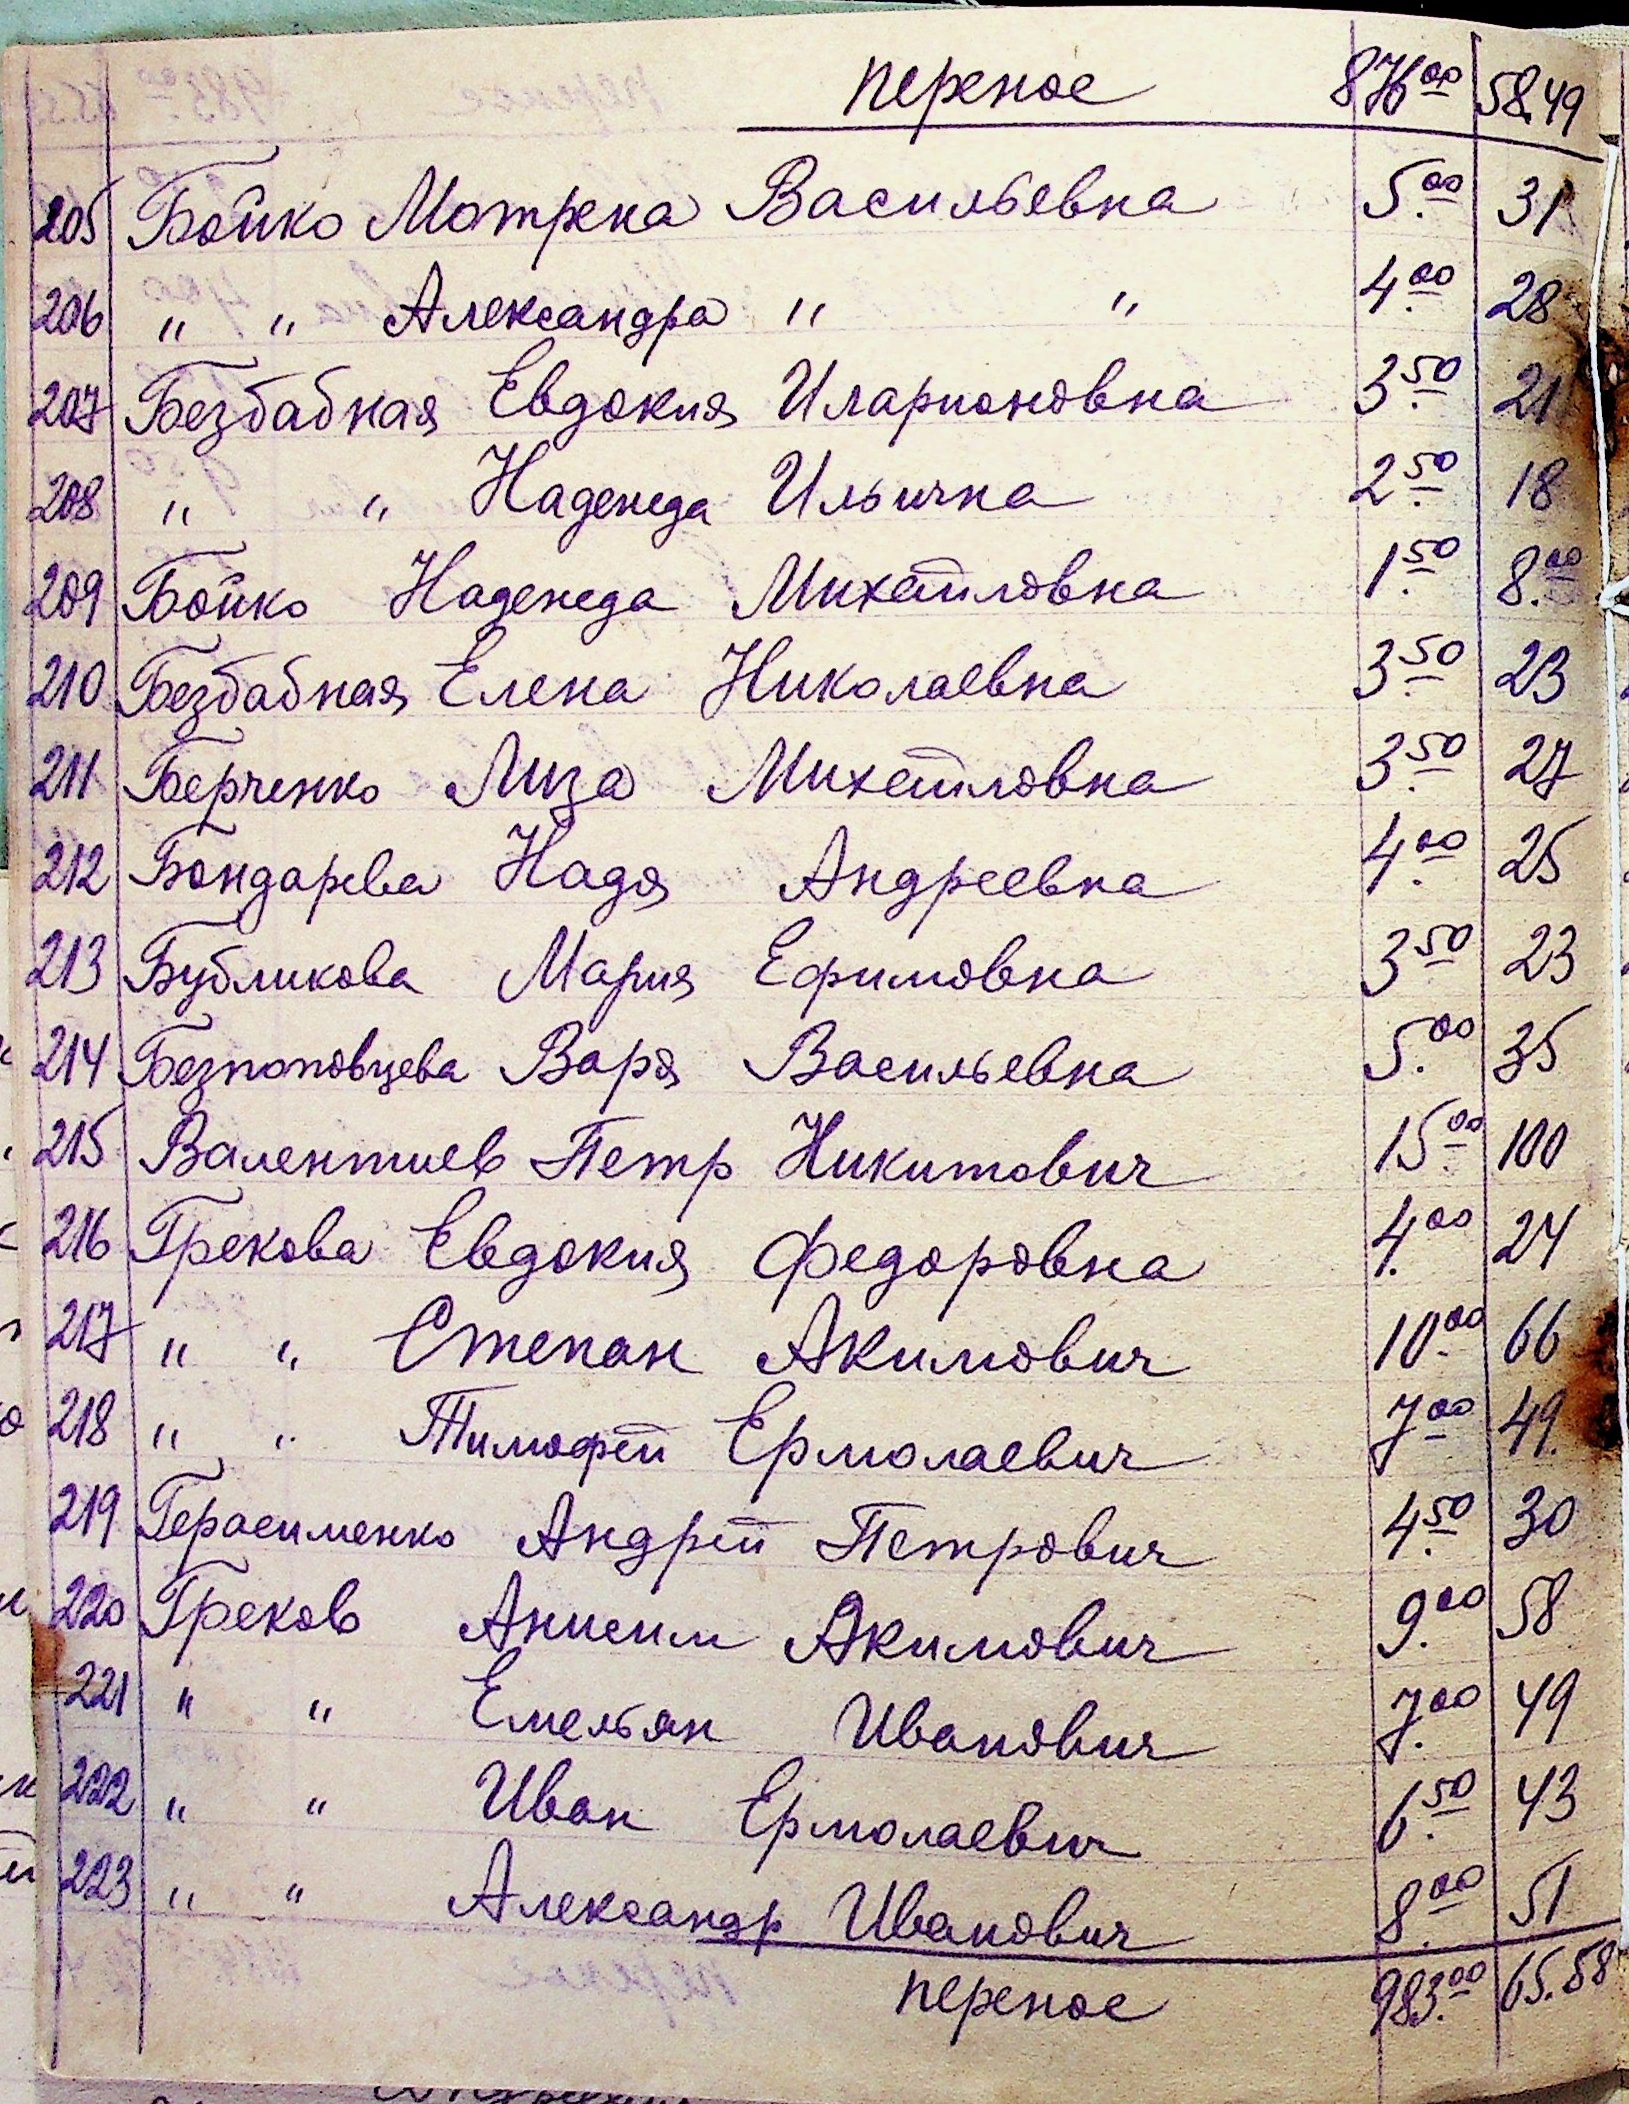 перенос 876 00 58.49
205 Бойко Мотрена Васильевна 5.00 31
206 " " Александра " " 4.00 28
207 Безбабная Евдокия Иларионовна 3.50 21
208 " " Надежда Ильична 2.50 18
209 Бойко Надежда Михайловна 1.50 8.00
210 Безбабная Елена Николаевна 3.50 23
211 Берченко Лиза Михайловна 3.50 27
212 Бондарева Надя Андреевна 4.00 25
213 Бубликова Мария Ефимовна 3.50 23
214 Безпоповцева Варя Васильевна 5.00 35
215 Валентиев Петр Никитович 15.00 100
216 Грекова Евдокия Федоровна 4.00 24
217 " " Степан Акимович 10.00 66
218 " " Тимофей Ермолаевич 7.00 49.
219 Герасименко Андрей Петрович 4.50 30
220 Греков Анисим Акимович 9.00 58
221 " " Емельян Иванович 7.00 49
222 " " Иван Ермолаевич 6.50 43
223 " " Александр Иванович 8.00 51
перенос 983.00 65.58